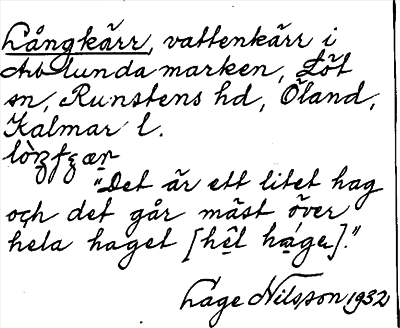 Långkärr, vattenkärr i
Arbelunda marken, Löt
sn, Runstens hd, Öland,
Kalmar l.
"Det är ett litet hag
och det går mäst över
hela haget [hêl hagen]."
Låge Nilsson 1932